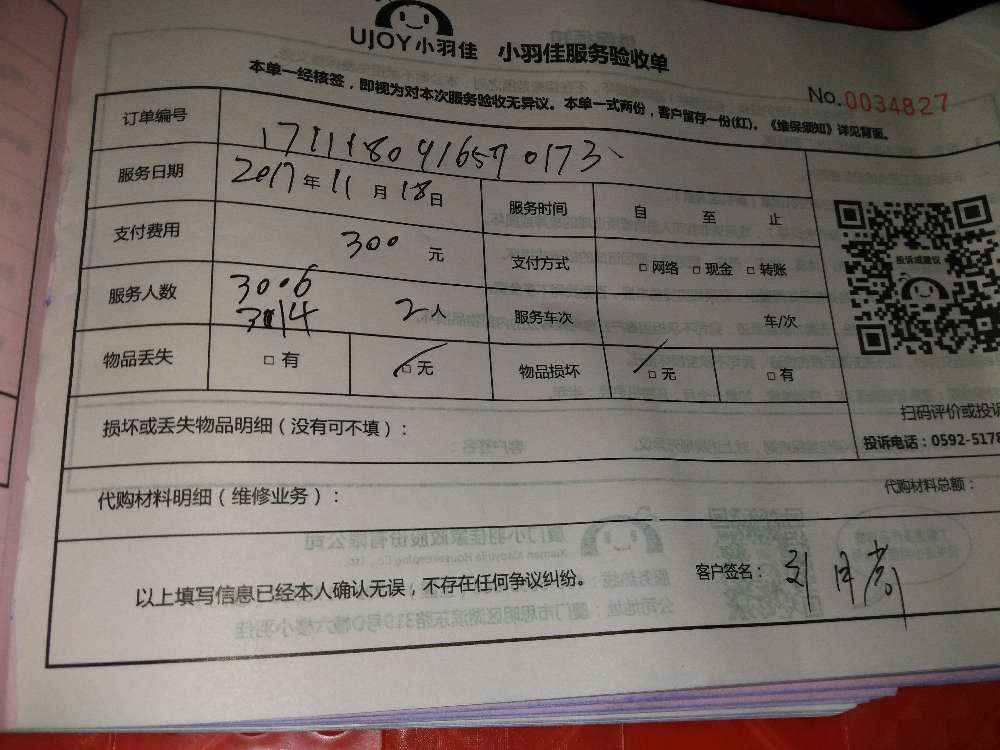 UJOY小羽佳 小羽佳服务验收单
No.0034827
本单一经核签，即视为对本次服务验收无异议。本单一式两份，客户留存一份(红)。《维保须知》详见背面。
订单编号 1711180416570173
服务日期 2017年11月18日 服务时间 自 至 止
支付费用 300 元 支付方式 □网络 □现金 □转账
服务人数 3006 3014 2人 服务车次 车/次
物品丢失 □有 □无 物品损坏 □无 □有
投诉或建议
扫码评价或投诉
投诉电话：0592-5178
损坏或丢失物品明细（没有可不填）：
代购材料明细（维修业务）： 代购材料总额：
以上填写信息已经本人确认无误，不存在任何争议纠纷。 客户签名：